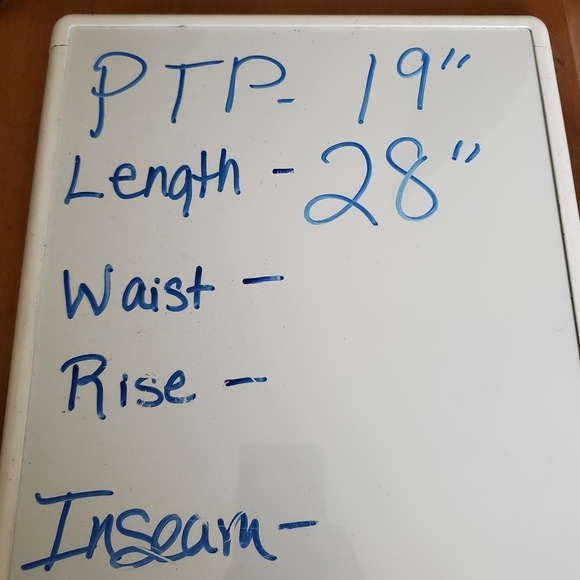 PTP- 19"
Length - 28"
Waist -
Rise -
Inseam -